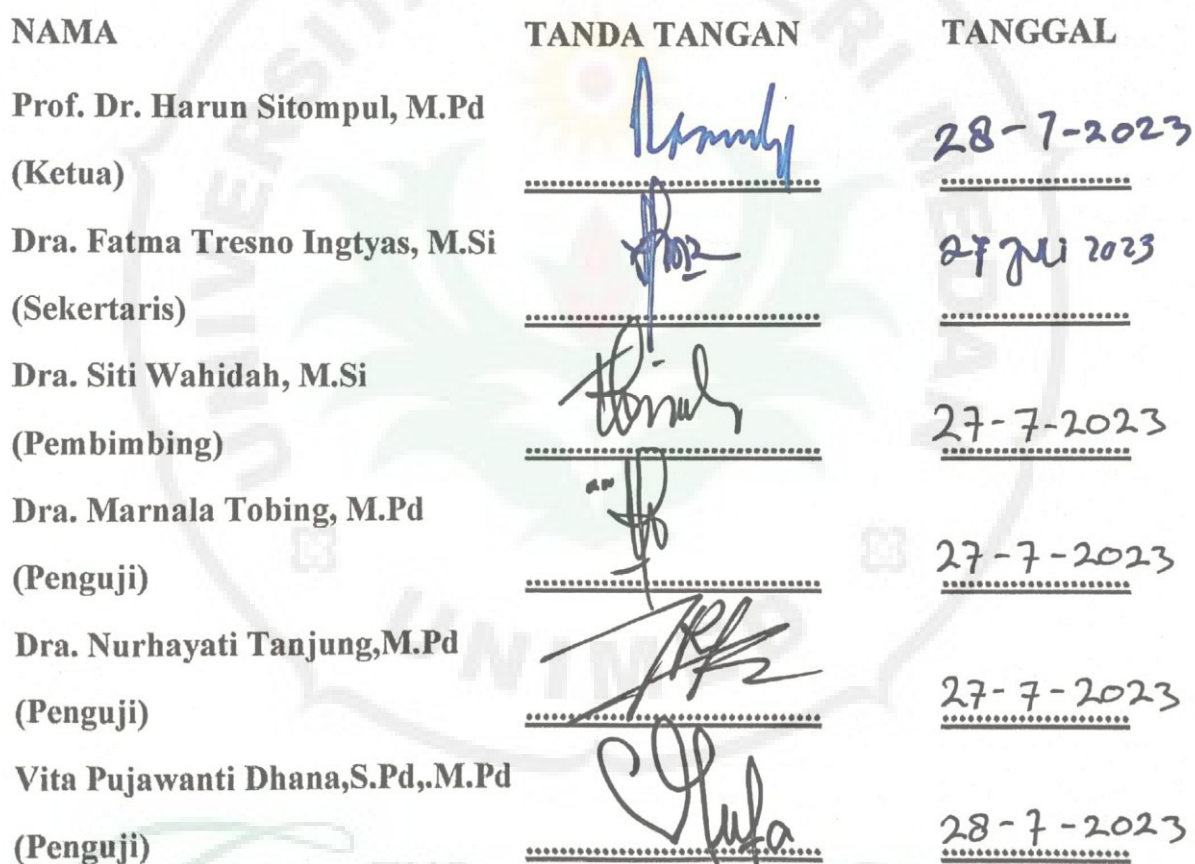 NAMA TANDA TANGAN TANGGAL
Prof. Dr. Harun Sitompul, M.Pd
(Ketua) 28-7-2023
Dra. Fatma Tresno Ingtyas, M.Si 27 Juli 2023
(Sekertaris)
Dra. Siti Wahidah, M.Si
(Pembimbing) 27-7-2023
Dra. Marnala Tobing, M.Pd
an
(Penguji) 27-7-2023
Dra. Nurhayati Tanjung,M.Pd
(Penguji) 27-7-2023
Vita Pujawanti Dhana,S.Pd,.M.Pd
(Penguji) 28-7-2023
UNIMED